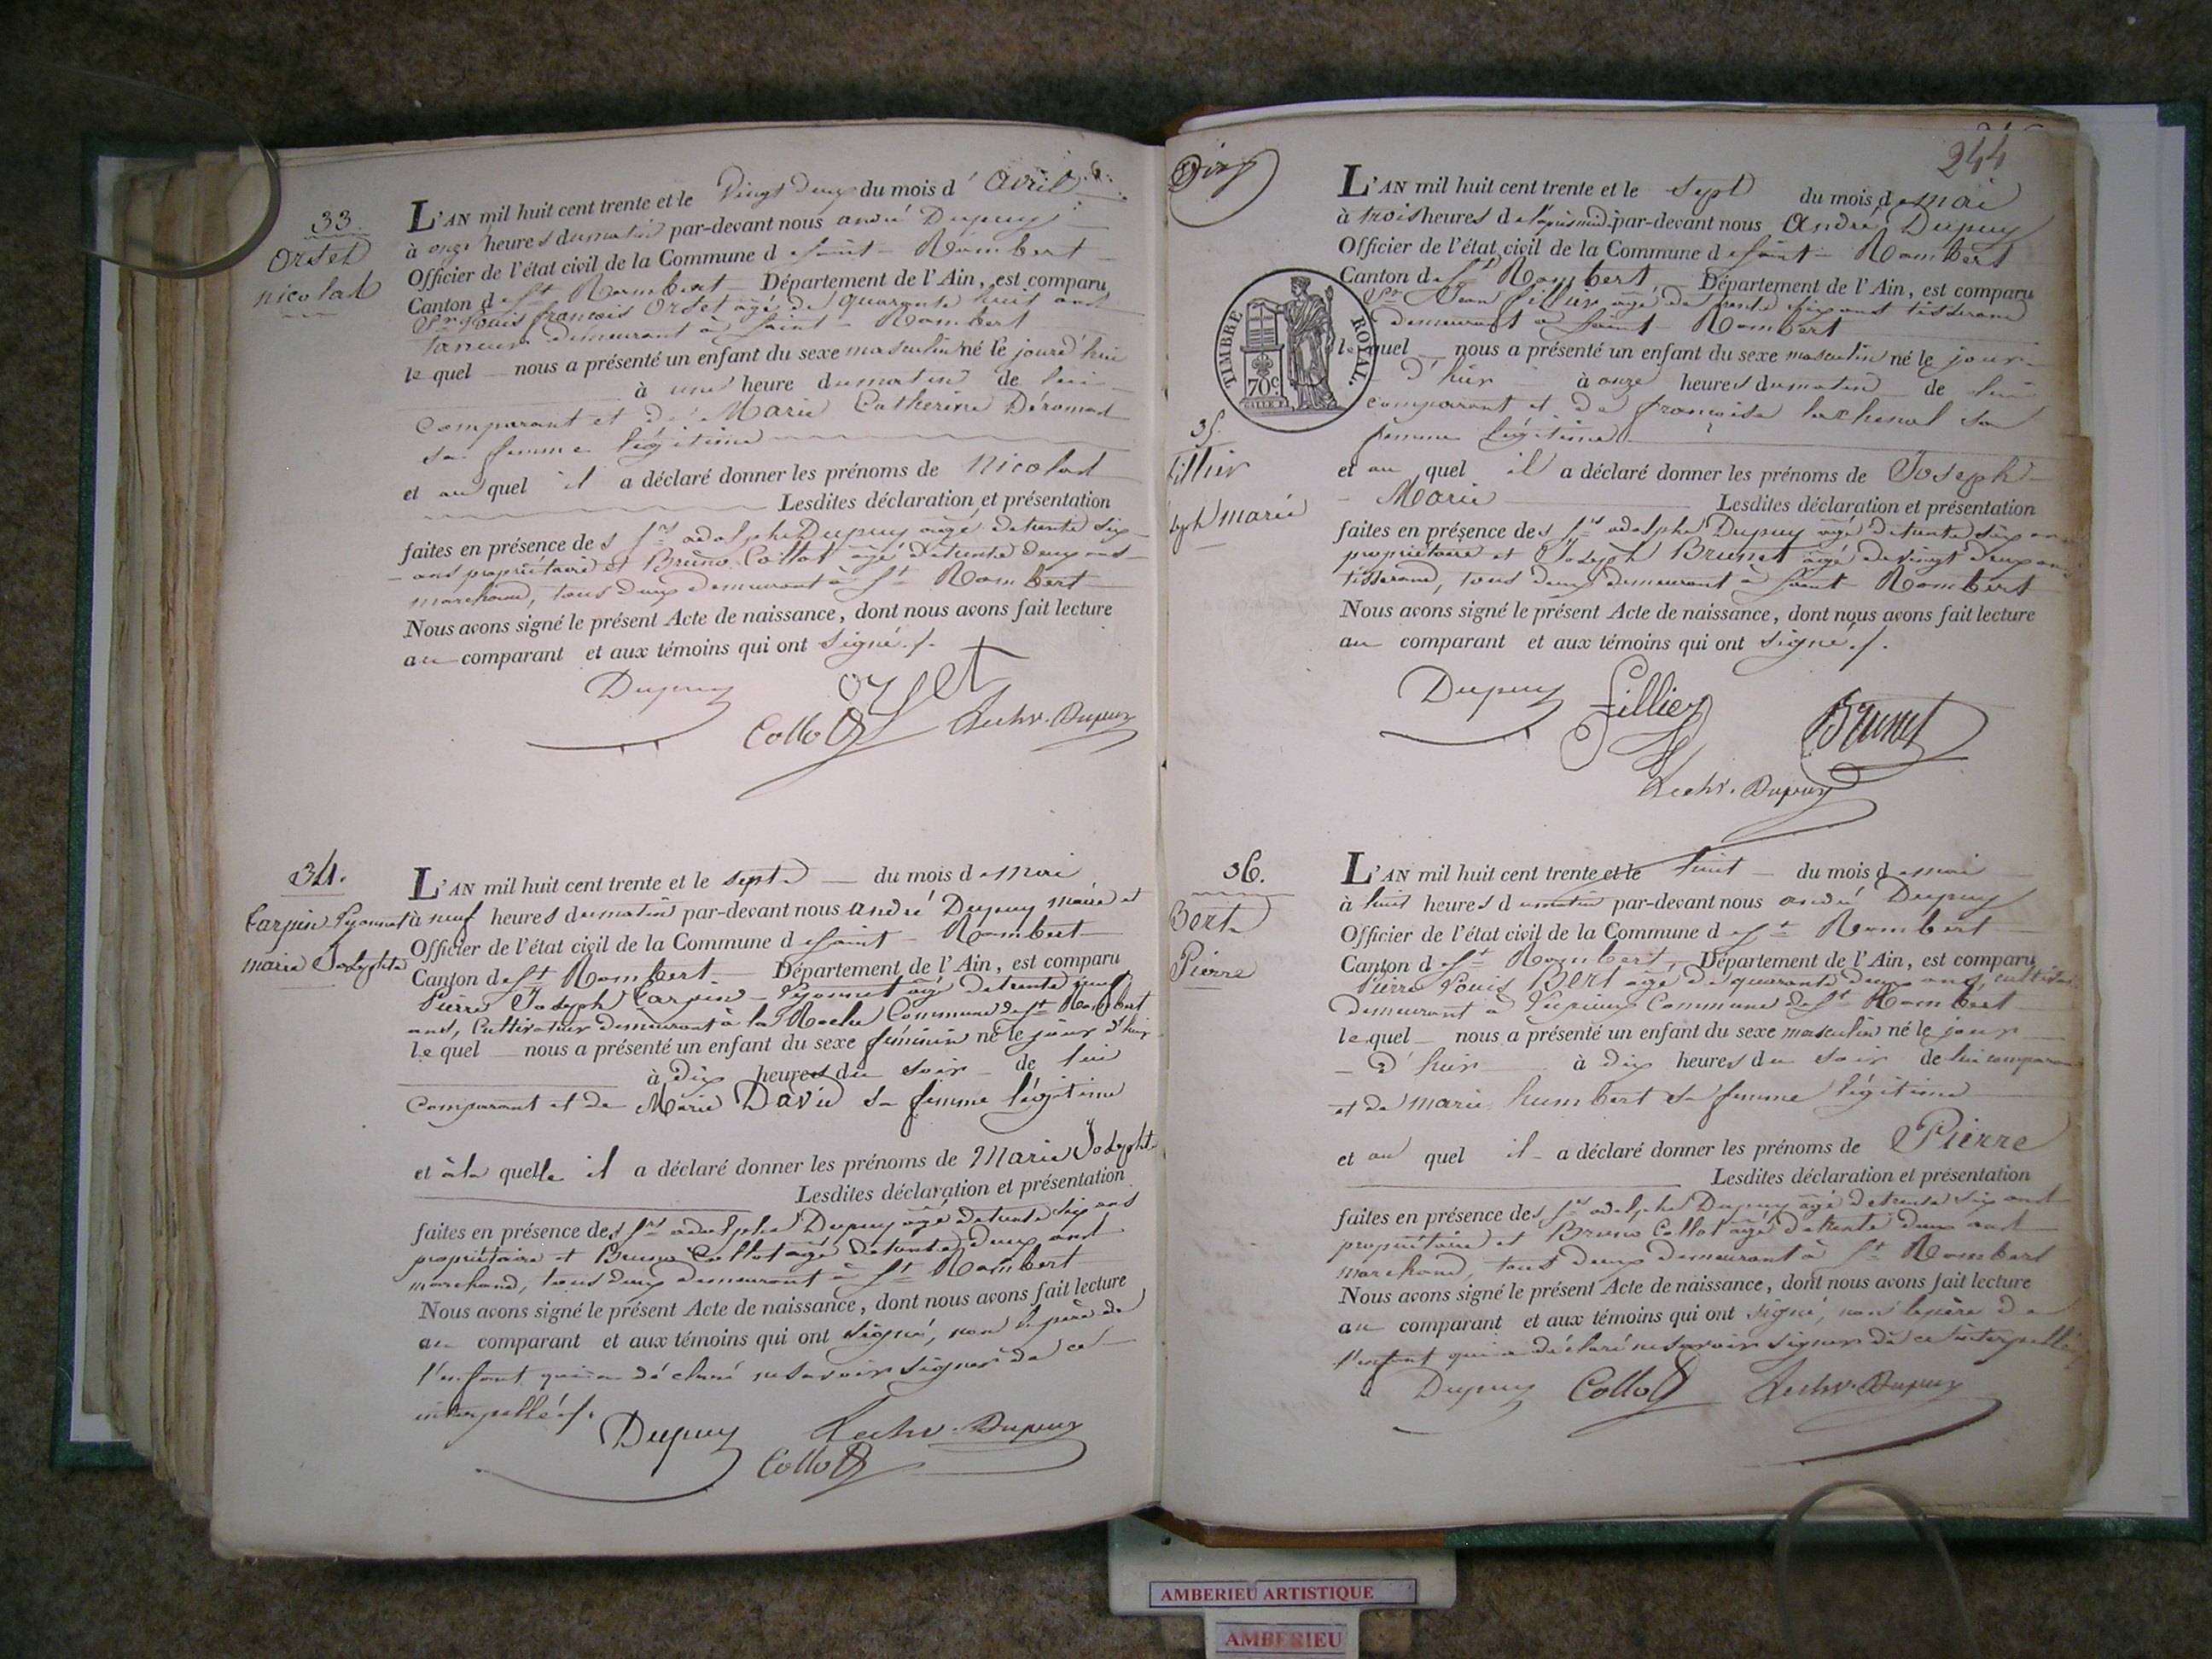 33.
Orset
nicolas
L'AN mil huit cent trente et le Vingt deux du mois d'avril
à onze heures du matin par-devant nous andré Dupuy
Officier de l'état civil de la Commune de saint-Rambert
Canton de St Rambert Département de l'Ain, est comparu
Sr Louis françois Orset agé de quarante huit ans
tanneur demeurant à Saint-Rambert
lequel nous a présenté un enfant du sexe masculin né le jour d'hui
à une heure du matin de lui
comparant et de Marie Catherine
sa femme légitime
et au quel il a déclaré donner les prénoms de Nicolas
Lesdites déclaration et présentation
faites en présence des Srs adolphe Dupuy agé de trente six
ans propriétaire et Bruno Collot agé de trente deux ans
marchand, tous deux demeurant à St Rambert
Nous avons signé le présent Acte de naissance, dont nous avons fait lecture
au comparant et aux témoins qui ont signé ./.
Dupuy orset
Collot Dupuy
34.
Carpin-Pyonnet
marie Josephte
L'AN mil huit cent trente et le sept du mois de mai
à neuf heures du matin par-devant nous andré Dupuy maire et
Officier de l'état civil de la Commune de saint-Rambert
Canton de St Rambert Département de l'Ain, est comparu
Pierre Joseph Carpin-Pyonnet agé de trente neuf
ans, Cultivateur demeurant à la Roche Commune de St Rambert
lequel nous a présenté un enfant du sexe féminin né le jour d'hier
à dix heures du soir de lui
comparant et de Marie David sa femme légitime
et à la quelle il a déclaré donner les prénoms de Marie Josephte
Lesdites déclaration et présentation
faites en présence des Srs adolphe Dupuy agé de trente six ans
propriétaire et Bruno Collot agé de trente deux ans
marchand, tous deux demeurant à St Rambert
Nous avons signé le présent Acte de naissance, dont nous avons fait lecture
au comparant et aux témoins qui ont signé, non le père de
l'enfant qui a déclaré ne savoir signer de ce
interpellé ./.
Dupuy Dupuy
Collot
244
L'AN mil huit cent trente et le sept du mois de mai
à trois heures de l'après midi par-devant nous André Dupuy
Officier de l'état civil de la Commune de saint-Rambert
Canton de St Rambert, Département de l'Ain, est comparu
Sr Jean fillier agé de trente six ans tisserand
demeurant à Saint-Rambert
TIMBRE ROYAL.
70c.
lequel nous a présenté un enfant du sexe masculin né le jour
d'hier à onze heures du matin de lui
comparant et de françoise lachenal sa
femme légitime
35.
fillier
seph marie
et au quel il a déclaré donner les prénoms de Joseph
Marie Lesdites déclaration et présentation
faites en présence des Srs adolphe Dupuy agé de trente six ans
propriétaire et Joseph Brunet agé de vingt deux ans
tisserand, tous deux demeurant à Saint Rambert
Nous avons signé le présent Acte de naissance, dont nous avons fait lecture
au comparant et aux témoins qui ont signé ./.
Dupuy fillier Brunet
Dupuy
36.
Bert
Pierre
L'AN mil huit cent trente et le huit du mois de mai
à huit heures du matin par-devant nous andré Dupuy
Officier de l'état civil de la Commune de St Rambert
Canton de St Rambert, Département de l'Ain, est comparu
Pierre Louis Bert agé de quarante deux ans,
demeurant à Commune de St Rambert
lequel nous a présenté un enfant du sexe masculin né le jour
d'hier à dix heures du soir de lui comparant
et de marie humbert sa femme légitime
et au quel il a déclaré donner les prénoms de Pierre
Lesdites déclaration et présentation
faites en présence des Srs adolphe Dupuy agé de trente six ans
propriétaire et Bruno Collot agé de trente deux ans
marchand, tous deux demeurant à St Rambert
Nous avons signé le présent Acte de naissance, dont nous avons fait lecture
au comparant et aux témoins qui ont signé, non le père de
l'enfant qui a déclaré ne savoir signer de ce interpellé
Dupuy Collot Dupuy
AMBERIEU ARTISTIQUE
AMBERIEU